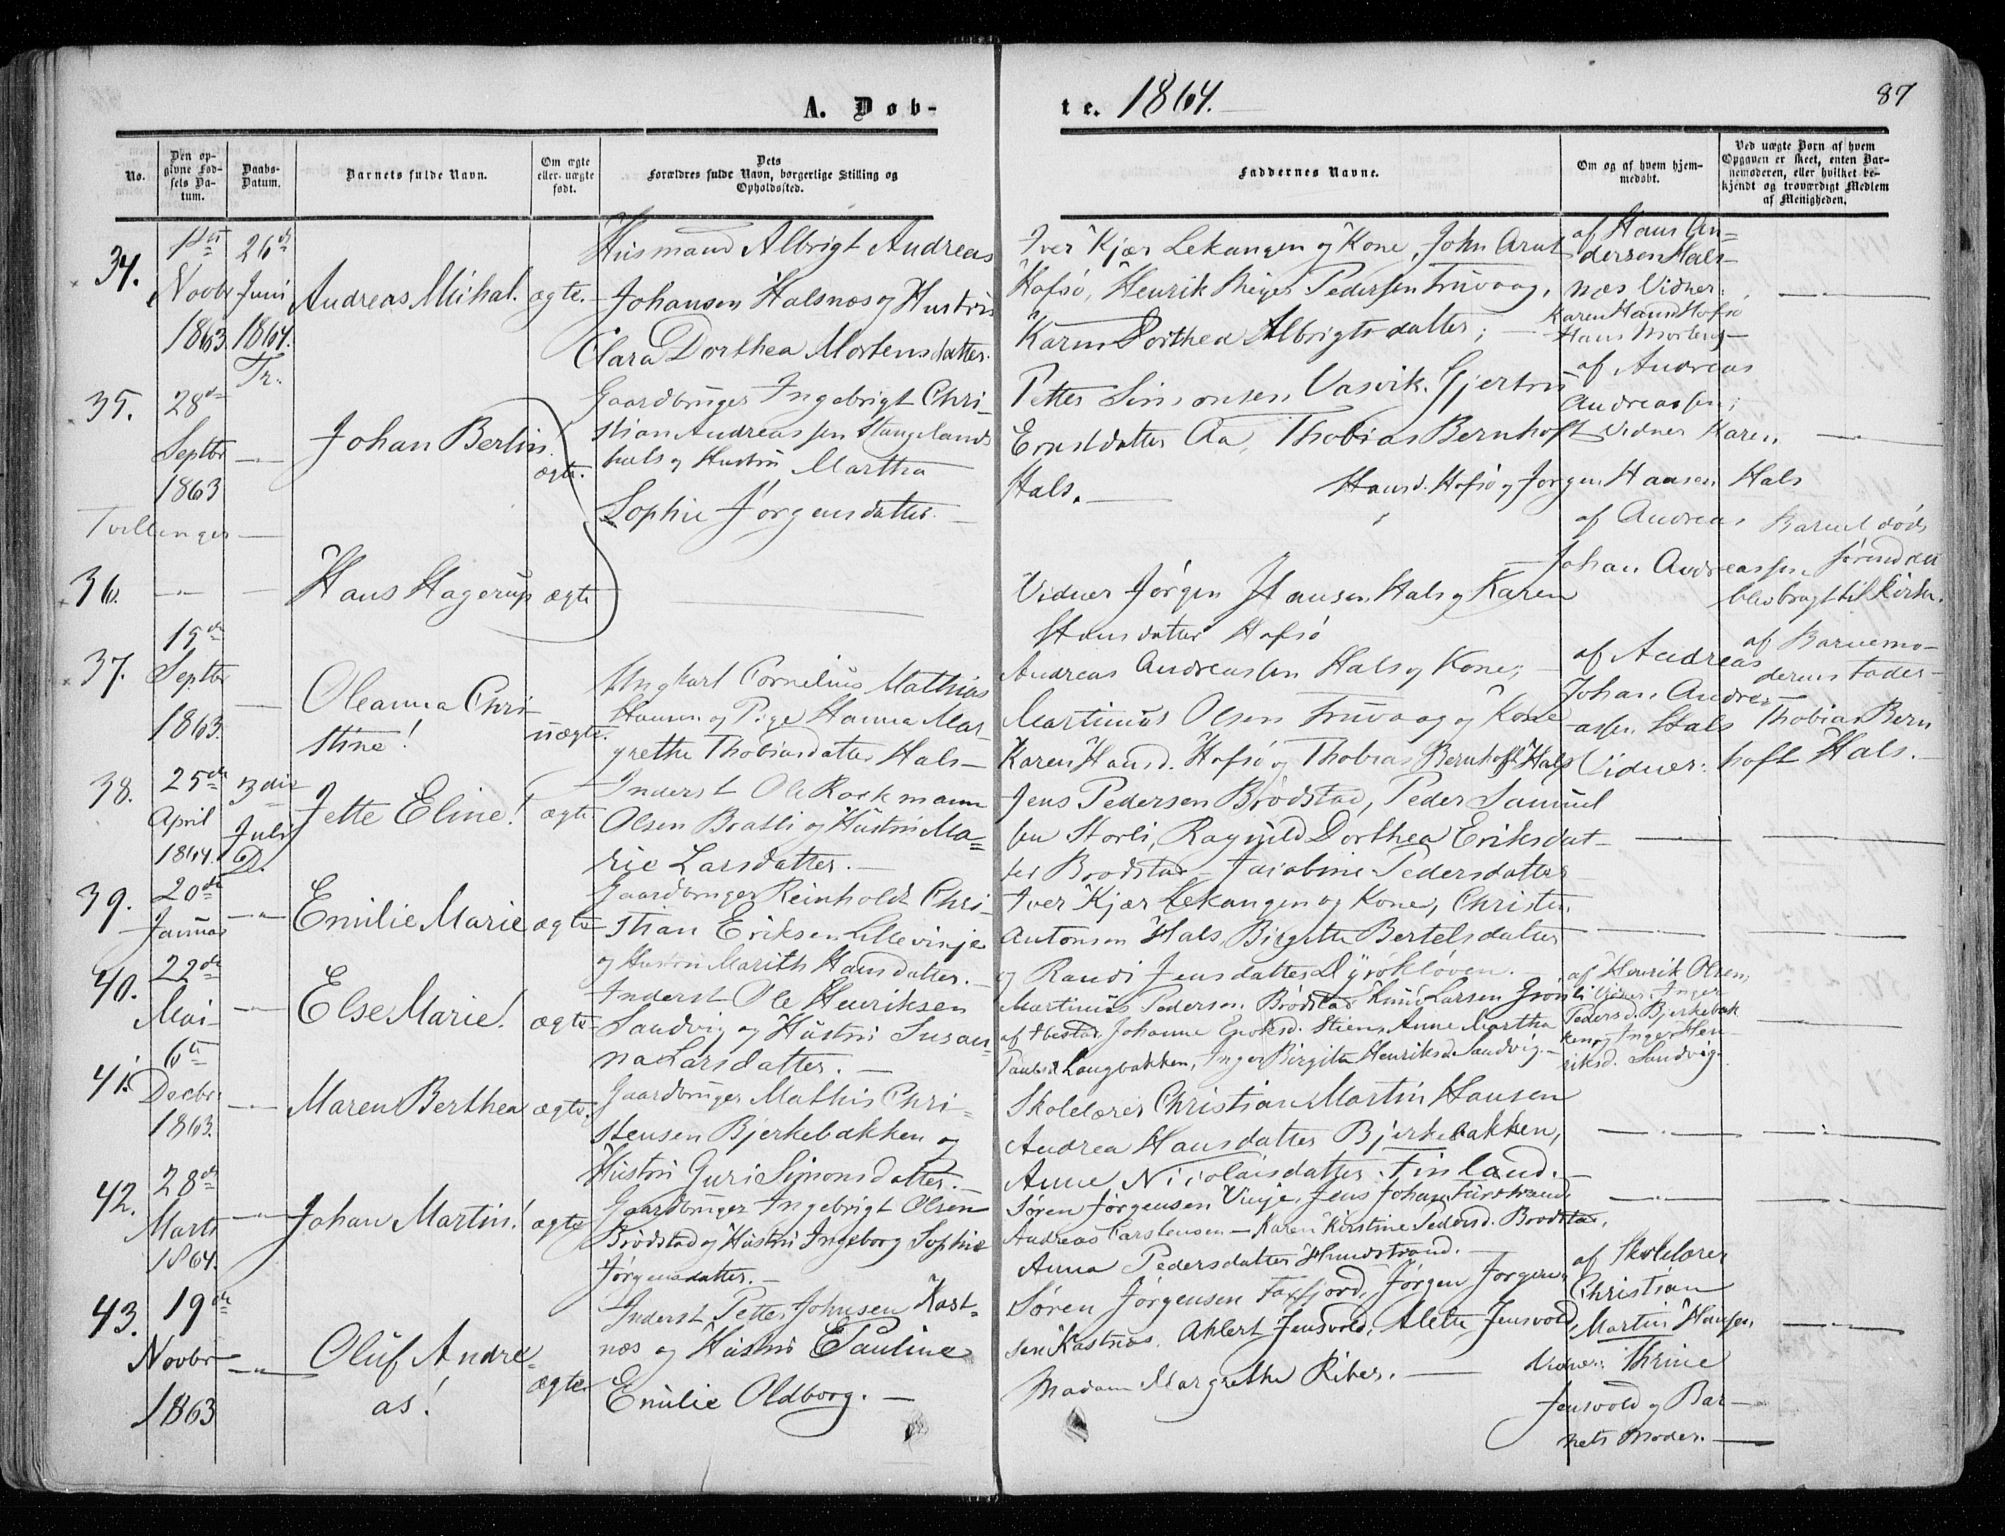 A. Døb-
te. 1864.
87
No.
Den op-
givne Fød-
sels Da-
tum.
Daabs-
Datum.
Barnets fulde Navn.
Om ægte
eller uægte
født.
Dets
Forældres fulde Navn, borgerlige Stilling og
Opholdssted.
Faddernes Navne.
Om og af hvem hjem-
medøbt.
Ved uægte Børn af hvem
Opgaven er skeet, enten Bar-
nemoderen, eller hvilket be-
kjendt og troværdigt Medlem
af Menigheden.
34.
1ste
Novbr
1863
26de
Juni
1864.
Tr.
Andreas Mikal.
ægte.
Husmand Albrigt Andreas
Johansen Halsnæs og Hustru
Clara Dorthea Mortensdatter.
Iver Kjær Lekangen og Kone, John Arnt
Hofsø, Henrik Meyer Pedersen Truvaag,
Karen Dorthea Albrigtsdatter;
af Hans An=
dersen Hals-
næs Vidner:
Karen Hansd Hofsø
Hans Mortens
35.
28de
Septbr
1863
Johan Berlin!
ægte.
Gaardbruger Ingebrigt Chri-
stian Andreassen Stangelands
hals og Hustru Martha
Sophie Jørgensdatter. -
Petter Simonsen Vasvik. Gjertru
Ernstdatter Aa, Thobias Bernhoft
Hals. -
af Andreas
Andreassen;
Vidner Karen
Hansd. Hofsø og Jørgen Hansen Hals
Tvillinger
36.
Hans Hagerup
ægte
Vidner Jørgen Hansen Hals og Karen
Hansdatter Hofsø
af Andreas
Johan Andreassen
Barnet døde
førend det
blev bragt til Kirken.
37.
19de
Septbr
1863.
Oleanna Chri-
stine!
uægte.
Ungkarl Cornelius Mathias
Hansen og Pige Hanna Mar-
grethe Thobiasdatter Hals -
Andreas Andreassen Hals og Kone;
Martinus Olsen Truvaag og Kone
Karen Hansd. Hofsø og Thobias Bernhoft Hals
af Andreas
Johan Andre-
assen Hals
Vidner:
af Barnemo-
derens Fader
Thobias Bern
hoft Hals. -
38.
25de
April
1864.
3die
Juli
D.
Jette Eline!
ægte
Inderst Ole Rockmann
Olsen Bratli og Hustru Ma=
rie Larsdatter. -
Jens Pedersen Brødstad, Peder Samuel
sen Storli, Ragnild Dorthea Eriksdat-
ter Brodstad - Jacobine Pedersdatter
39.
20de
Januar
Emilie Marie
ægte
Gaardbruger Reinholdt Chri-
stian Eriksen Lillevinje
og Hustru Marith Hansdatter. -
Iver Kjær Lekangen og Kone, Christen
Antonsen Hals, Birgitte Bertelsdatter
og Randi Jensdatter Dyrøkløven.
40.
22de
Mai
Else Marie!
ægte
Inderst Ole Henriksen
Sandvig og Hustru Susan-
na Larsdatter. -
Martinus Pedersen Brødstad Knud Larsen Gronli
af Ibestad. Johanne Enoksd. Stien, Anne Martha
Paulsd Langbakken, Inger Birgitte Henriksd. Sandvig. -
af Henrik Olsen,
Vidner: Inger
Pedersd. Bjerkebak
ken og Inger Hen
riksd. Sandvig.
41.
6te
Decbr
1863.
Maren Berthea
ægte.
Gaardbruger Mathis Chri-
stensen Bjerkebakken og
Hustru Guri Simonsdatter. -
Skolelærer Christian Martin Hansen
Andrea Hansdatter Bjerkebakken,
Anne Nicolaisdatter Finland. -
42.
28de
Marts
1864.
Johan Martin!
ægte
Gaardbruger Ingebrigt Olsen
Brødstad og Hustru Ingeborg Sophie
Jørgensdatter. -
Søren Jørgensen Vinje, Jens Johan Furstrand
Andreas Carstensen - Karen Kirstine Pedersd. Brodstad,
Anna Pedersdatter Hundstrand. -
43.
19de
Novbr
1863
Oluf Andre-
as!
ægte.
Inderst Petter Johnsen Kast-
næs og Hustru Pauline
Emilie Oldborg. -
Søren Jørgensen Faxfjord, Jørgen Jørgen
sen Kastnæs. Ahlert Jensvold, Alette Jensvold
Madam Margrethe Riber. -
af Skolelærer
Christian
Martin Hansen
Vidner: Thrine
Jensvold og Bar-
nets Moder. -